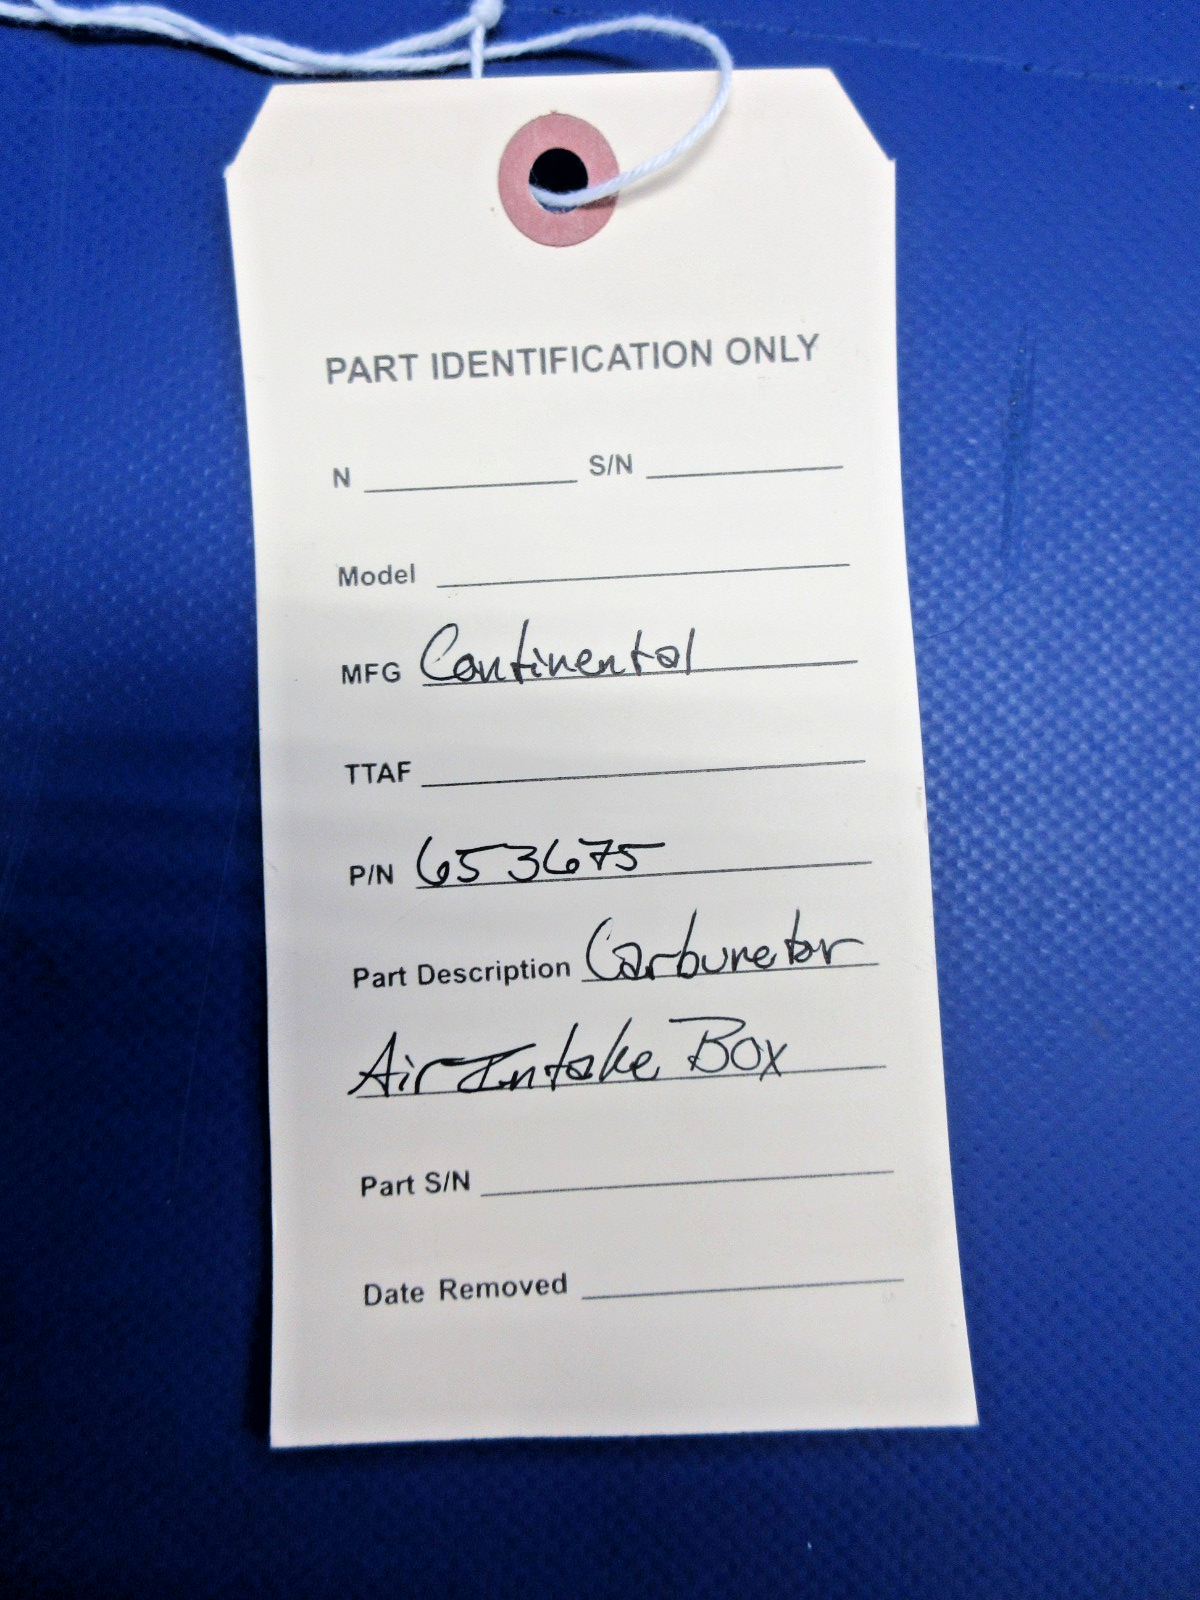 PART IDENTIFICATION ONLY
N S/N
Model
MFG Continental
TTAF
P/N 653675
Part Description Carburetor
Air Intake Box
Part S/N
Date Removed